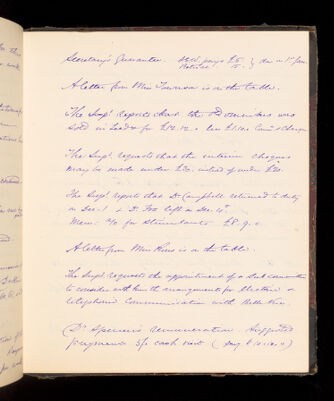 Secretary's Guarantee.
A letter from Miss is on the table.
The Supt reports that the old omnibus was
sold in Leeds for £12.12. less
The Supt requests that the interim cheques
may be made under £30. instead of under £20.
The Supt reports that Dr Campbell returned to duty
on Dec. 1 & Dr Fox left on Dec. 4th
Memo: a/c for stimulants £8.9.0
A letter from Miss is on the table.
The Supt requests the appointment of a Sub Committee
to consider with him the arrangements for Electric &
telephonic communication with
Dr Spencer's remuneration. Suggested
5/- each visit